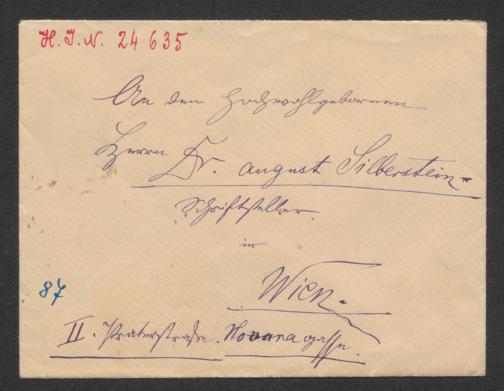 H. I. N. 24 635
An den Hochwohlgebornen
Herrn Dr. August Silberstein
Schriftsteller
in
Wien.
87
II. Praterstraße. Novaragasse.